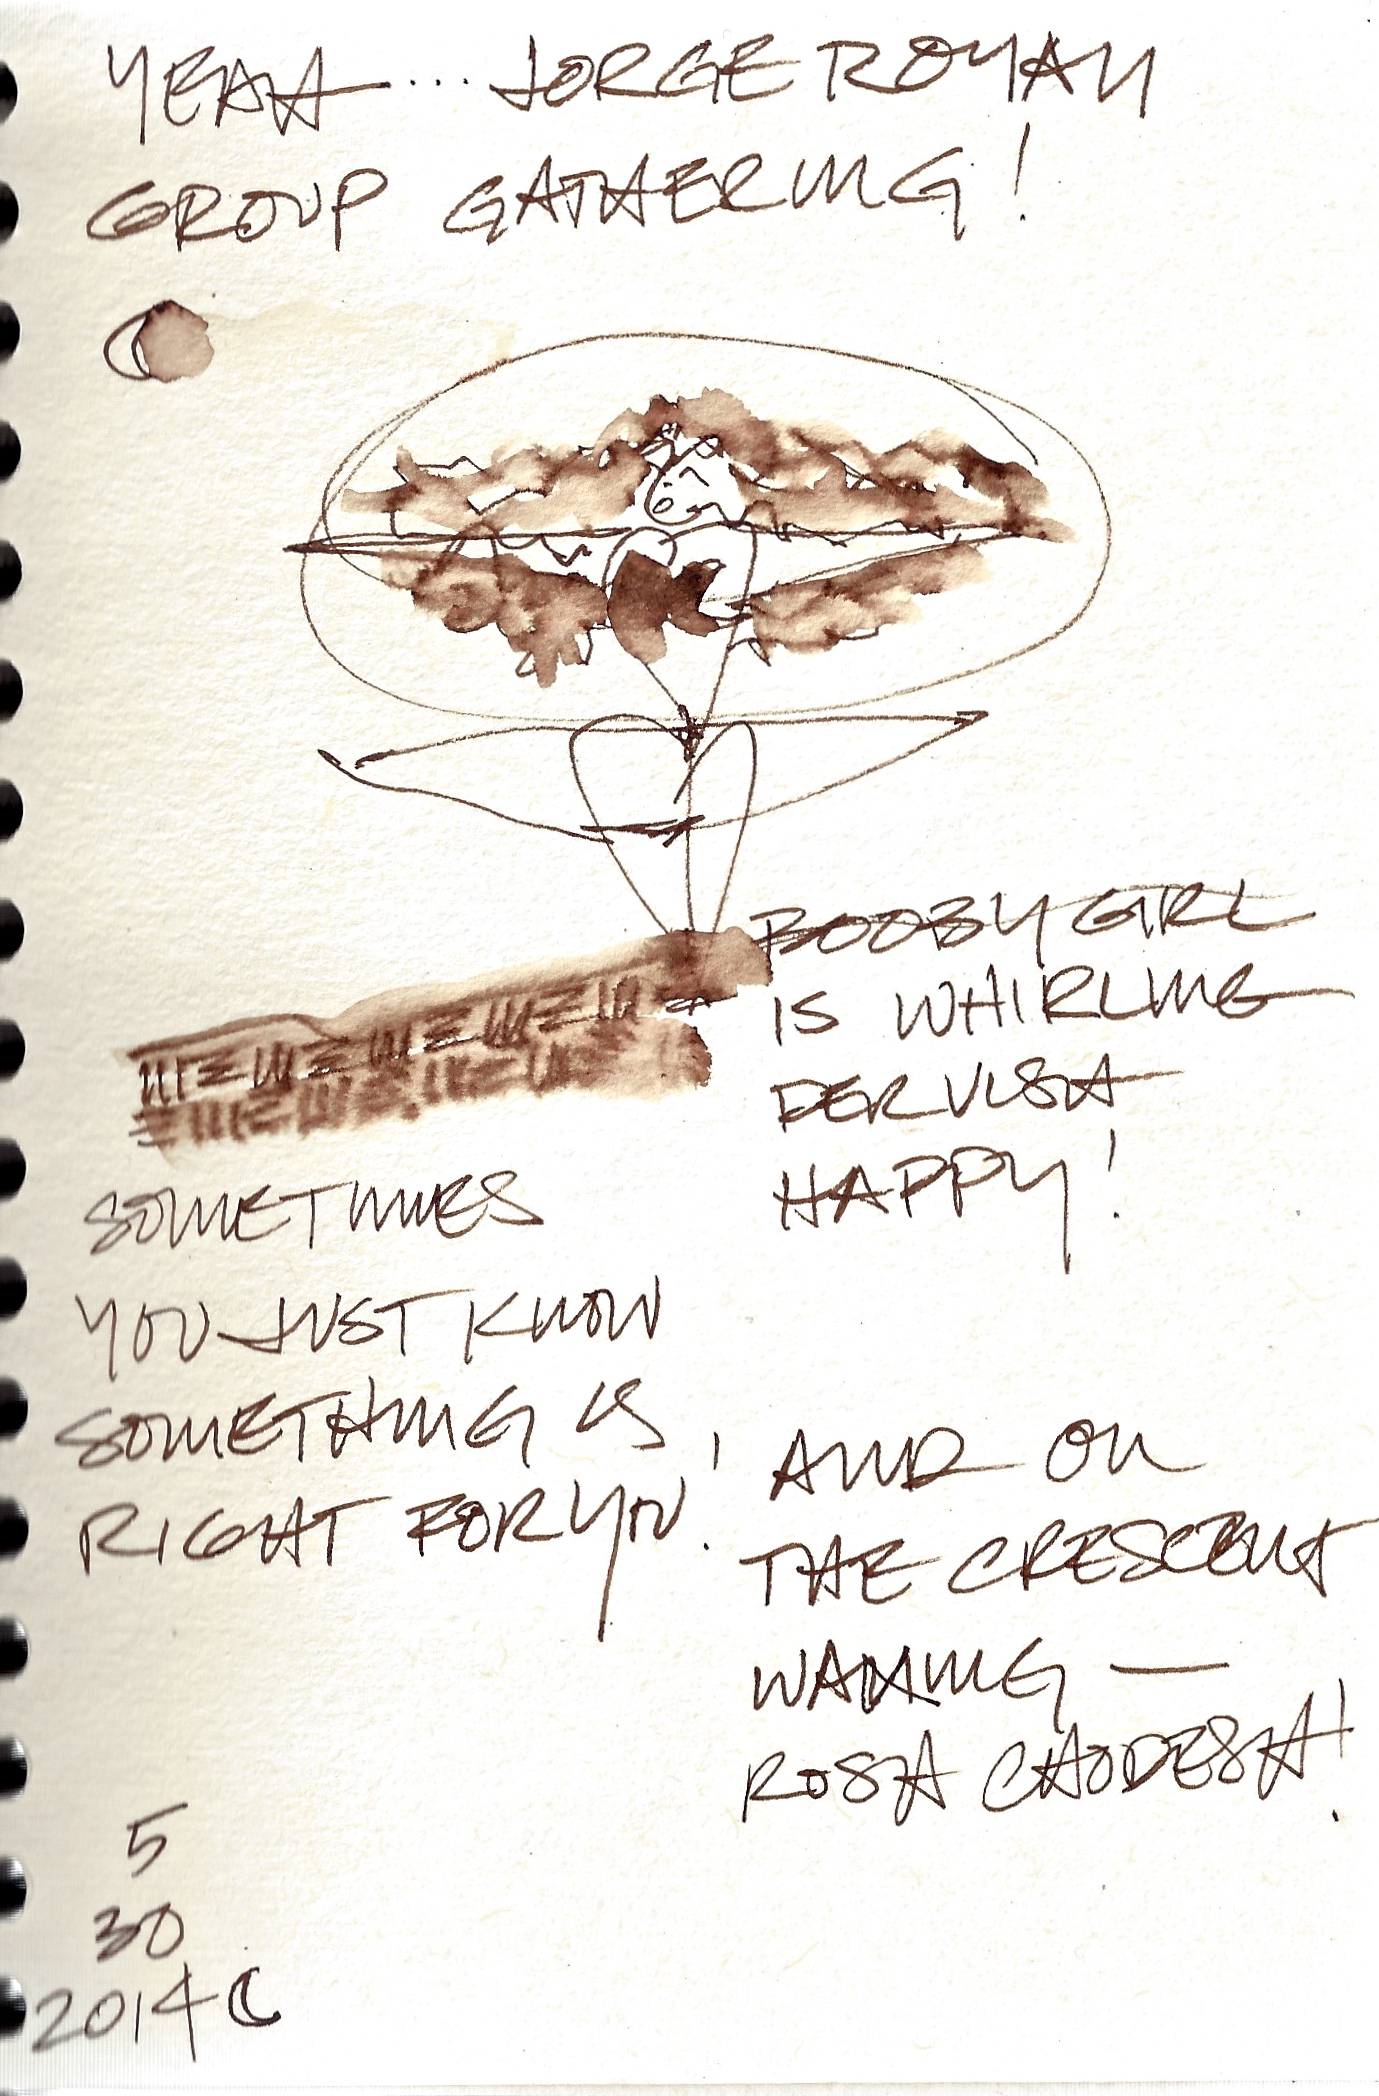 YEAH... JORGE ROYAN
GROUP GATHERING!
BOOBY GIRL
IS WHIRLING
DERVISH
HAPPY!
SOMETIMES
YOU JUST KNOW
SOMETHING IS
RIGHT FOR YOU!
AND ON
THE CRESCENT
WANING —
ROSH CHODESH!
5
30
2014